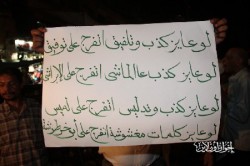 لو عايز كذب وتلفيق اتفرج على توفيق
لو عايز كذب عالماشي اتفرج على الإبراشي
لو عايز كذب وتدليس اتفرج على لميس
لو عايز كلمات مغشوشة اتفرج على